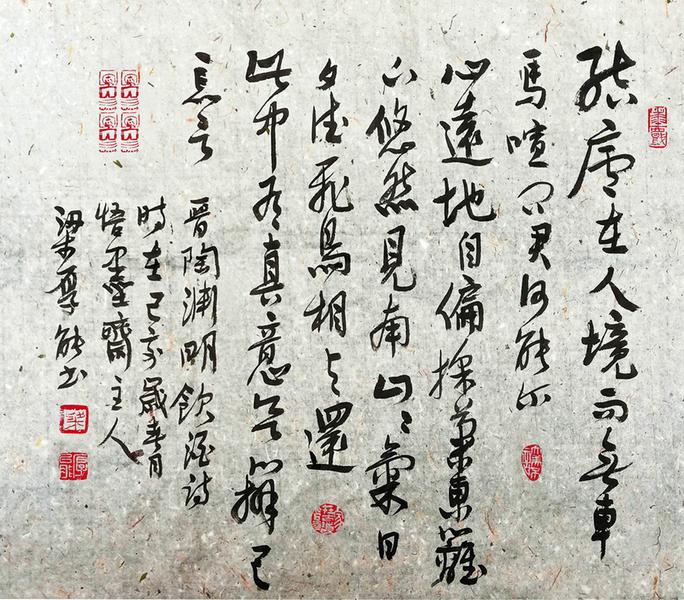 結廬在人境而無車
馬喧问君何能尔
心遠地自偏採菊東籬
下悠然見南山々氣日
夕佳飛鳥相与還
此中有真意欲辨已
忘言
晋陶渊明飲酒詩
時在己亥歲春月
悟墨齋主人
梁厚能书